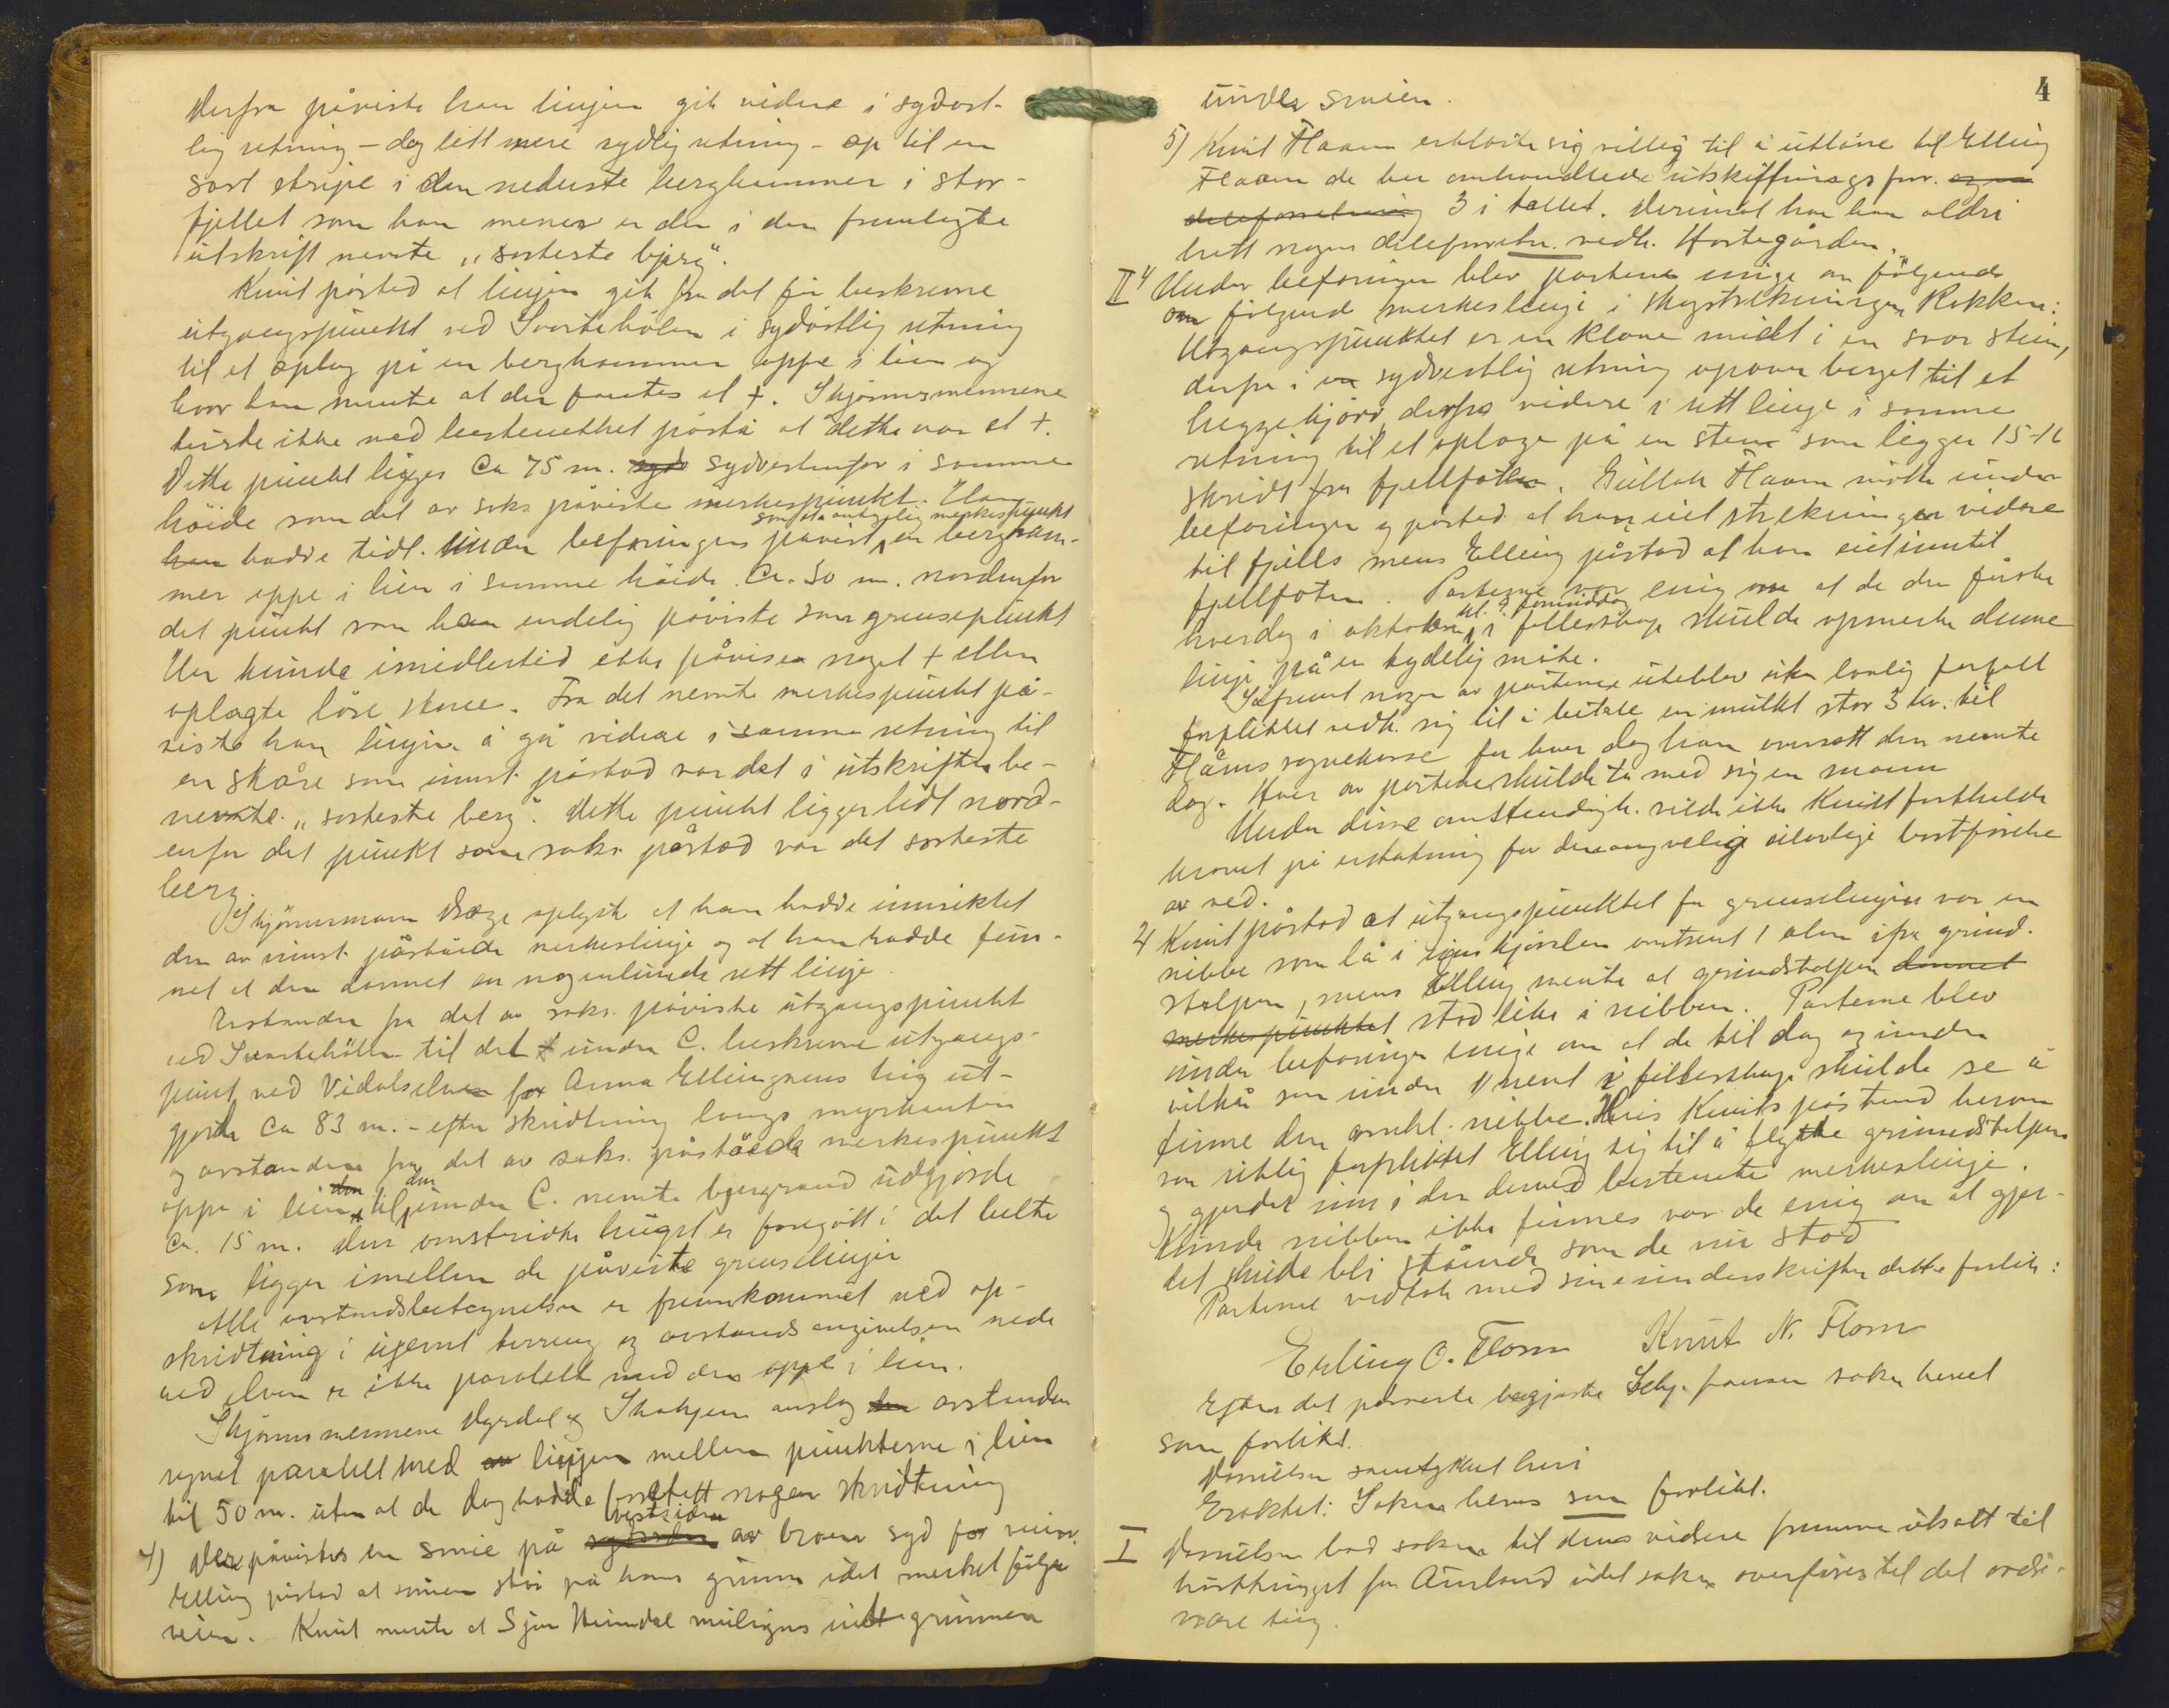 derfra påviste han linjen gik videre i sydøst-
lig retning – dog litt mere sydlig retning – op til en
sort stripe i den nederste berghammer i stor-
fjellet som han mener er den i den fremlegte
utskrift nevnte „sorteste bjerg".
Knut påstod at linjen gik fra det før beskrevne
utgangspunkt ved Svartehølen i sydøstlig retning
til et oplag på en berghammer oppe i lien og
hvor han mente at der fantes et +. Skjønsmennene
turde ikke med bestemthet påstå at dette var et +.
Dette punkt ligger Ca 75 m. syd sydvestenfor i samme
høide som det av saks. påviste merkespunkt.
han hadde tidl. under befaringen påvist en bergham-
som et antagelig merkespunkt
mer oppe i lien i samme høide Ca. 50 m. nordenfor
det punkt som han endelig påviste som grensepunkt
Her kunde imidlertid ikke påvises noget + eller
oplagte løse stene. Fra det nevnte merkespunkt på-
viste han linjen å gå videre i samme retning til
en skåre som innst. påstod var det i utskriften be-
nevnte „sorteste berg". Dette punkt ligger lidt nord-
enfor det punkt som saks. påstod var det sorteste
berg.
Skjønsmann Drege oplyste at han hadde innsiktet
den av innst. påståede merkeslinje og at han hadde fun-
net at den dannet en nogenlunde rett linje.
Avstanden fra det av saks. påviste utgangspunkt
ved Svartehølen til det under C. beskrevne utgangs-
punt ved Vidalselven for Anna Ellingsens ting ut-
gjorde Ca 83 m. – efter skridtning langs myrkanten
og avstanden fra det av saks. påståede merkespunkt
oppe i lien den til den under C. nevnte bjergrand udgjorde
Ca. 15 m. Den omstridte hugst er foregått i det belte
som ligger imellem de påviste grenselinjer
Alle avstandsbetegnelser er fremkommet ved op-
skridtning i ujevnt terreng og avstandsangivelsen nede
ved elven er ikke paralell med den oppe i lien.
Skjønsmennene Dyrdal og Skahjem anslog den avstanden
regnet paralell med av linjen mellem punkterne i lien
til 50 m. uten at de dog hadde foretatt nogen skridtning
4) Der påvistes en smie på sydsiden vestsiden av broen syd for veien.
Elling påstod at smien står på hans grunn idet merket følger
veien. Knut mente at Sjur Heimdal muligens eide grunnen
4
under smien.
5) Knut Flaam erklærte sig villig til å utlåne til Elling
Flaam de her omhandlede utskiftningsforr. og en
deleforretning 3 i tallet. Derimot har han aldri
hatt nogen deleforretn. vedk. Hortegården.
II 1) Under befaringen blev partene enige om følgende
om følgende merkeslinje i skogstrekningen Rokken:
Utgangspunktet er en klove midt i en svær stein,
derfra i en sydvestlig retning opover berget til et
heggekjørr, derfra videre i rett linje i samme
retning til et oplag på en sten som ligger 15-16
skridt fra fjellfoten. Gullak Flaam møtte under
befaringen og påstod at han eiet strekningen videre
til fjells mens Elling påstod at han eiet inntil
fjellfoten. Parterne var enig om at de den første
hverdag i oktober kl. 9 formiddag i fellesskap skulde opmerke denne
linje på en tydelig måte.
Såfremt nogen av partene uteblev uten lovlig forfall
forpliktet vedk. sig til å betale en mulkt stor 3 kr. til
Flåms sognekasse for hver dag han oversatt den nevnte
dag. Hver av partene skulde ta med sig en mann
Under disse omstendigh. vilde ikke Knut fastholde
kravet på erstatning for den angivelig ulovlige bortførelse
av ved.
2) Knut påstod at utgangspunktet for grenselinjen var en
nibbe som lå i kjørslen omtrent 1 alen ifra grind-
stolpen, mens Elling mente at grindstolpen dannet
merkespunktet stod like i nibben. Parterne blev
under befaringen enige om at de til dag og under
vilkår som under 1 nevnt i fellesskap skulde se å
finne den omhl. nibbe. Hvis Knuts påstand herom
var riktig forpliktet Elling sig til å flytte grindstolpen
og gjerdet inn i den derved bestemte merkeslinje.
Kunde nibben ikke finnes var de enig om at gjer-
det skulde bli stående som de nu stod
Parterne vedtok med sine underskrifter dette forlik:
Erling O. Flom Knut N. Flom
Efter det passerte begjærte saken hevet
som forlikt.
Danielsen samtykket heri
Eraktet: Saken heves som forlikt.
I Danielsen bad saken til dens videre fremme utsatt til
høsttinget for Aurland idet saken overføres til det ordi-
nære ting.